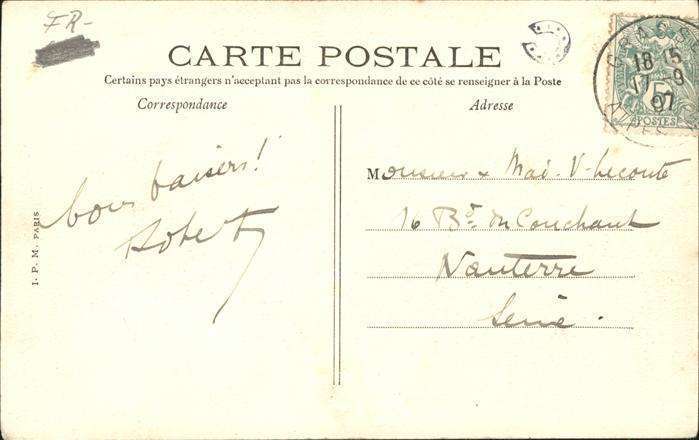 FR-
CARTE POSTALE
Certains pays étrangers n'acceptant pas la correspondance de ce côté se renseigner à la Poste
Correspondance
Adresse
GRASSE
18 15
17 - 9
07
ALPES
5
POSTES
bons baisers!
Robert
Monsieur & Mad. V. Leconte
16 Bd. du Couchant
Nanterre
Seine.
I. P. M. PARIS